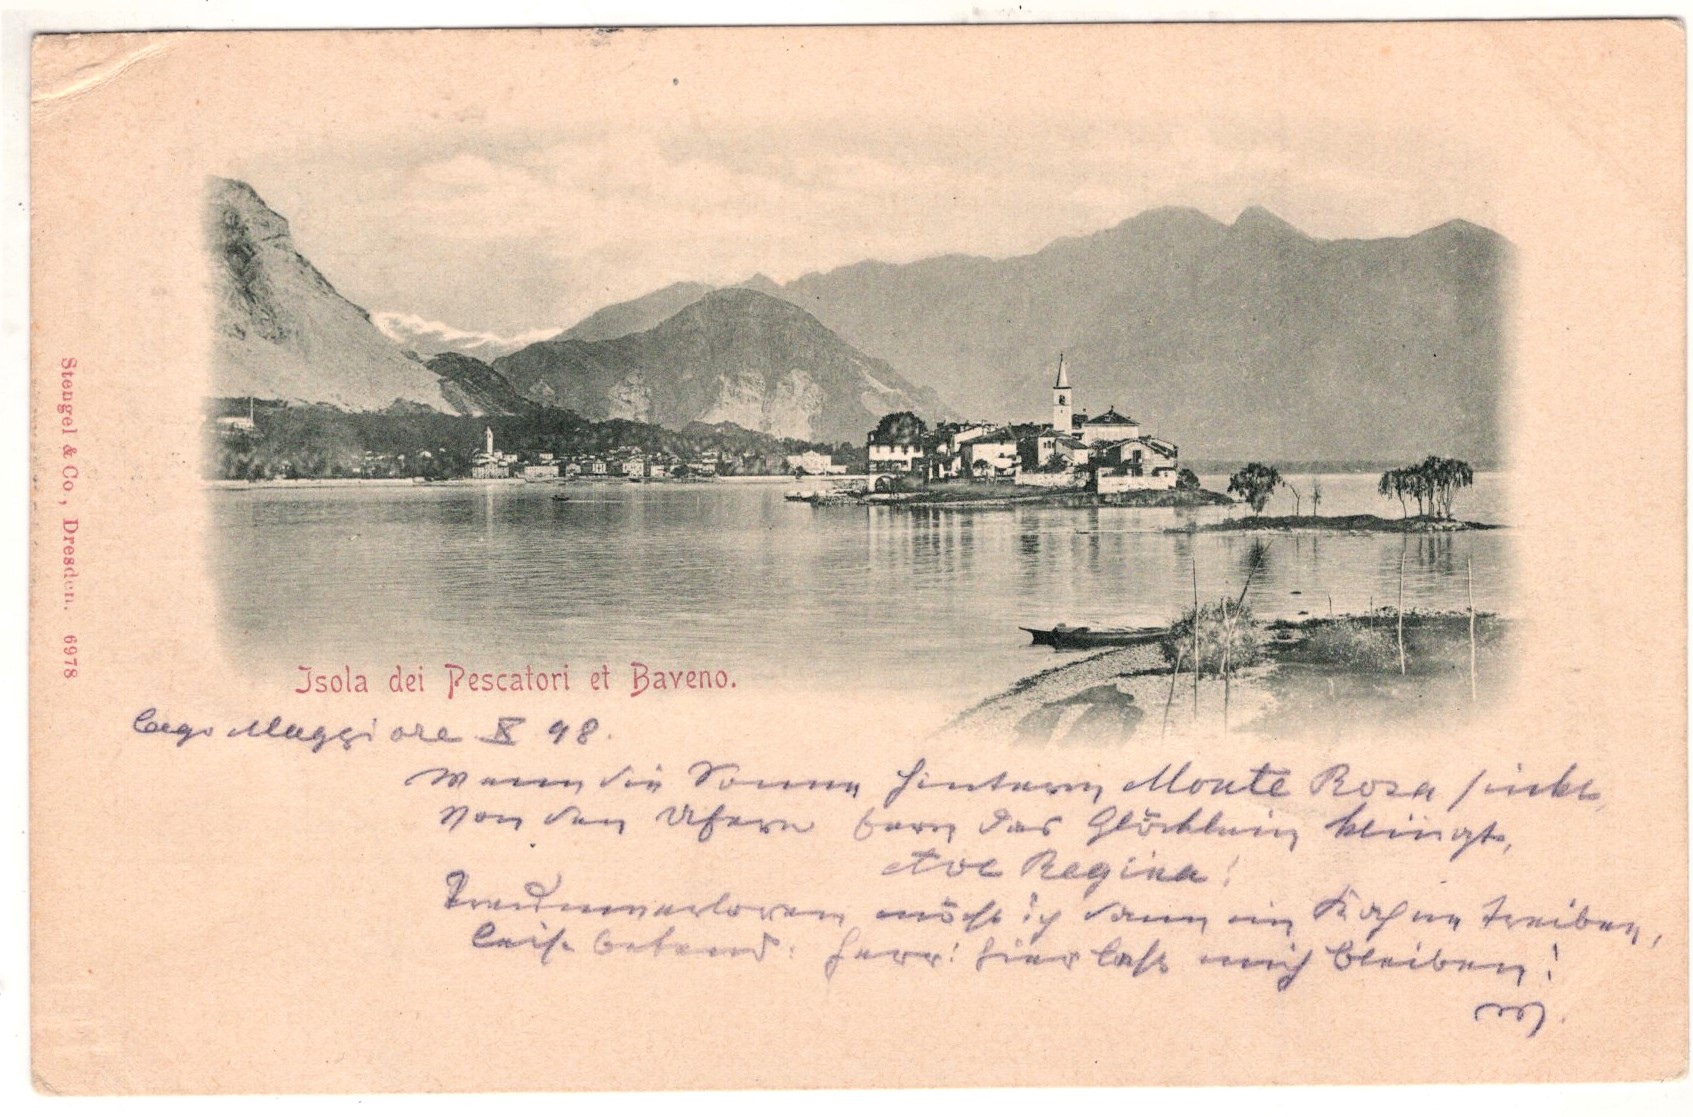 Stengel & Co., Dresden. 6978
Isola dei Pescatori et Baveno.
Lago Maggiore X 98.
Wenn die Sonne hinterm Monte Rosa sinkt,
Von den Ufern das Glöcklein klingt,
Ave Regina!
Traumverloren möcht ich dann im Kahne treiben,
leise betend: Herr! hier laß mich bleiben!